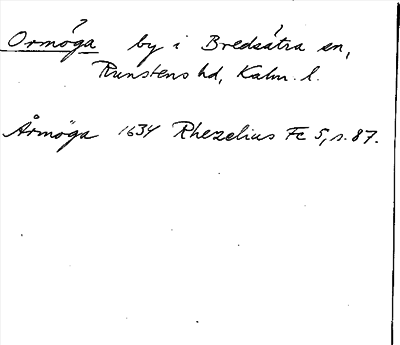 Ormöga by i Bredsätra sn,
Runstens hd, Kalm. l.
Årmöga 1634 Rhezelius Fc 5, s. 87.